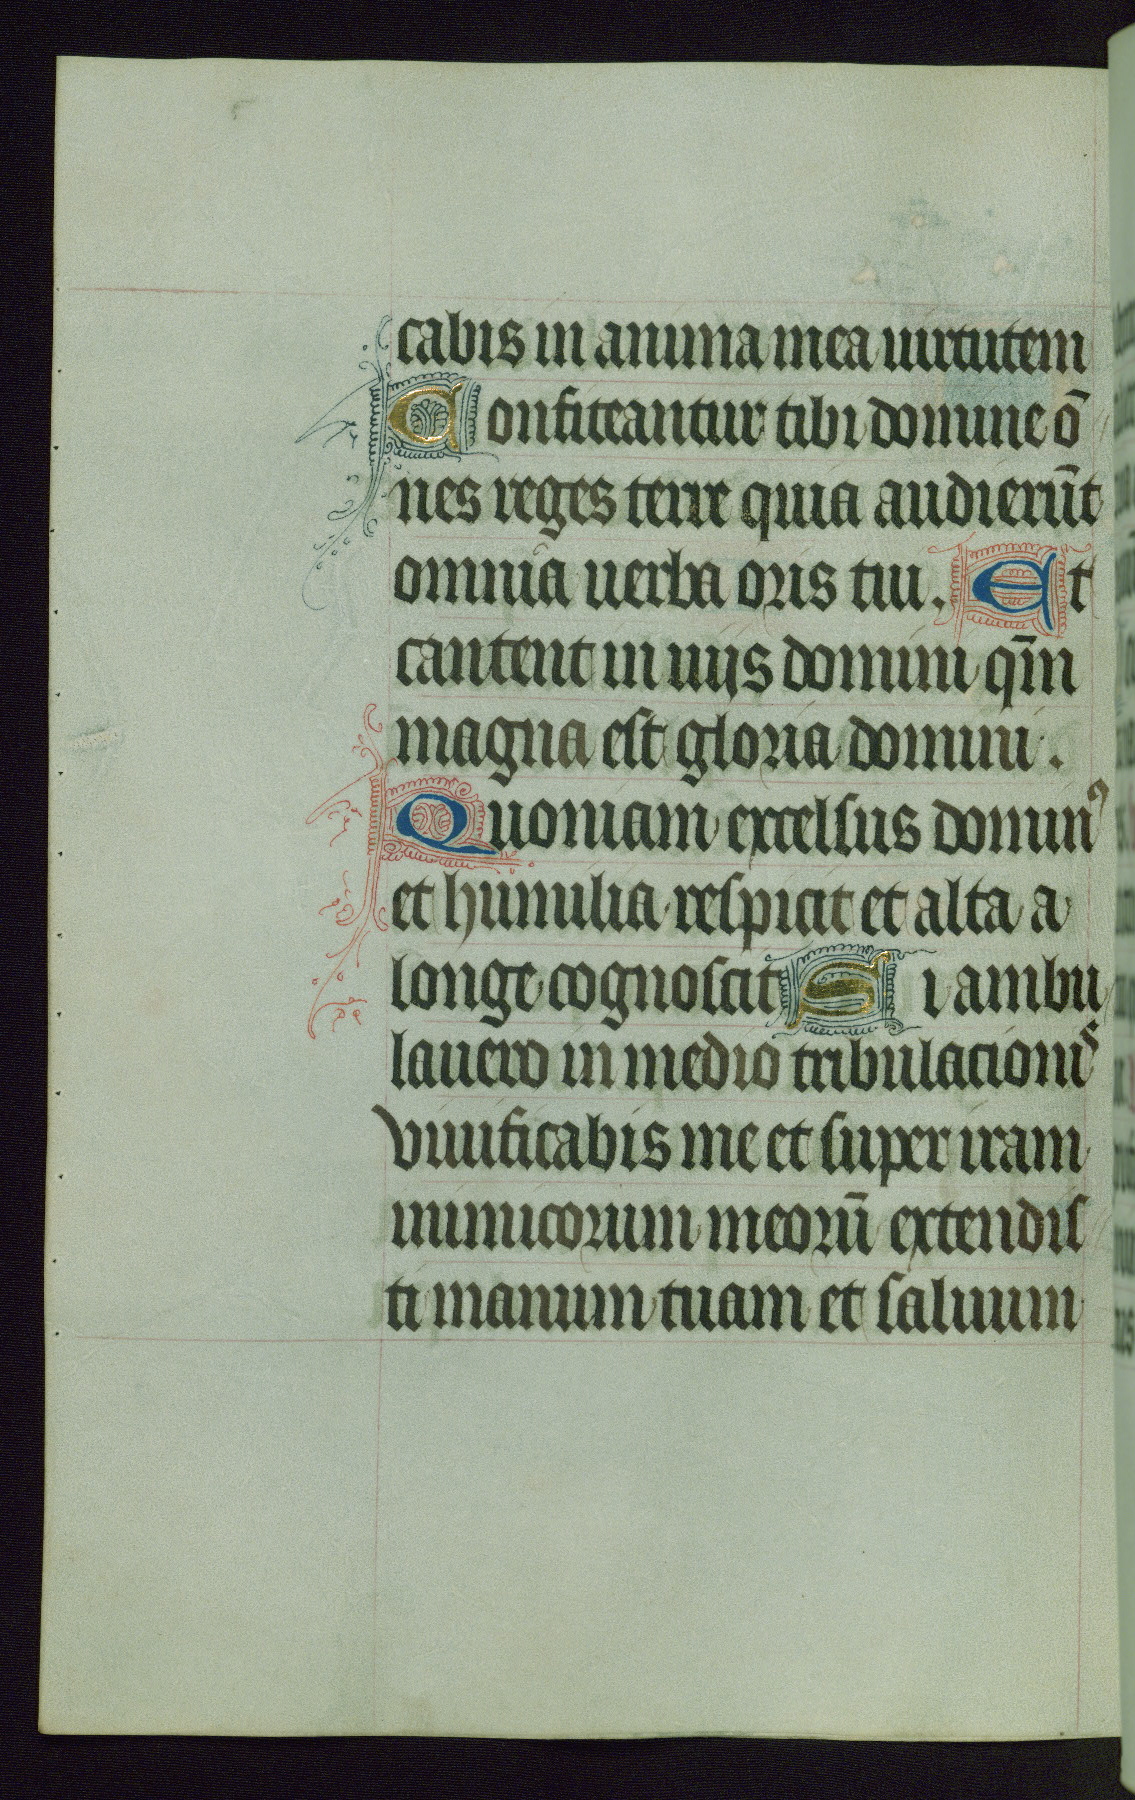 cabis in anima mea uirtutem
Confiteantur tibi domine o̅
nes reges terre quia audieru̅t
omnia uerba oris tui. Et
cantent in uijs domini qm̅
magna est gloria domini.
Quoniam excelsus domin⁹
et humilia respicit et alta a
longe cognoscit Si ambu
lauero in medio tribulacionis
viuificabis me et super iram
inimicorum meoru̅ extendis
ti manum tuam et saluum